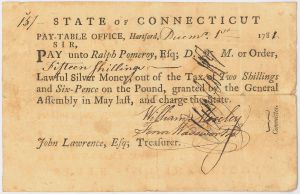 STATE OF CONNECTICUT
PAY-TABLE OFFICE, Hartford, Decemr. 1st 1781
SIR,
PAY unto Ralph Pomeroy, Esq; D. Q. M. or Order,
Fifteen Shillings
Lawful Silver Money, out of the Tax of Two Shillings
and Six-Pence on the Pound, granted by the General
Assembly in May last, and charge the State.
William Moseley
Fenn Wadsworth
Committee.
John Lawrence, Esq; Treasurer.